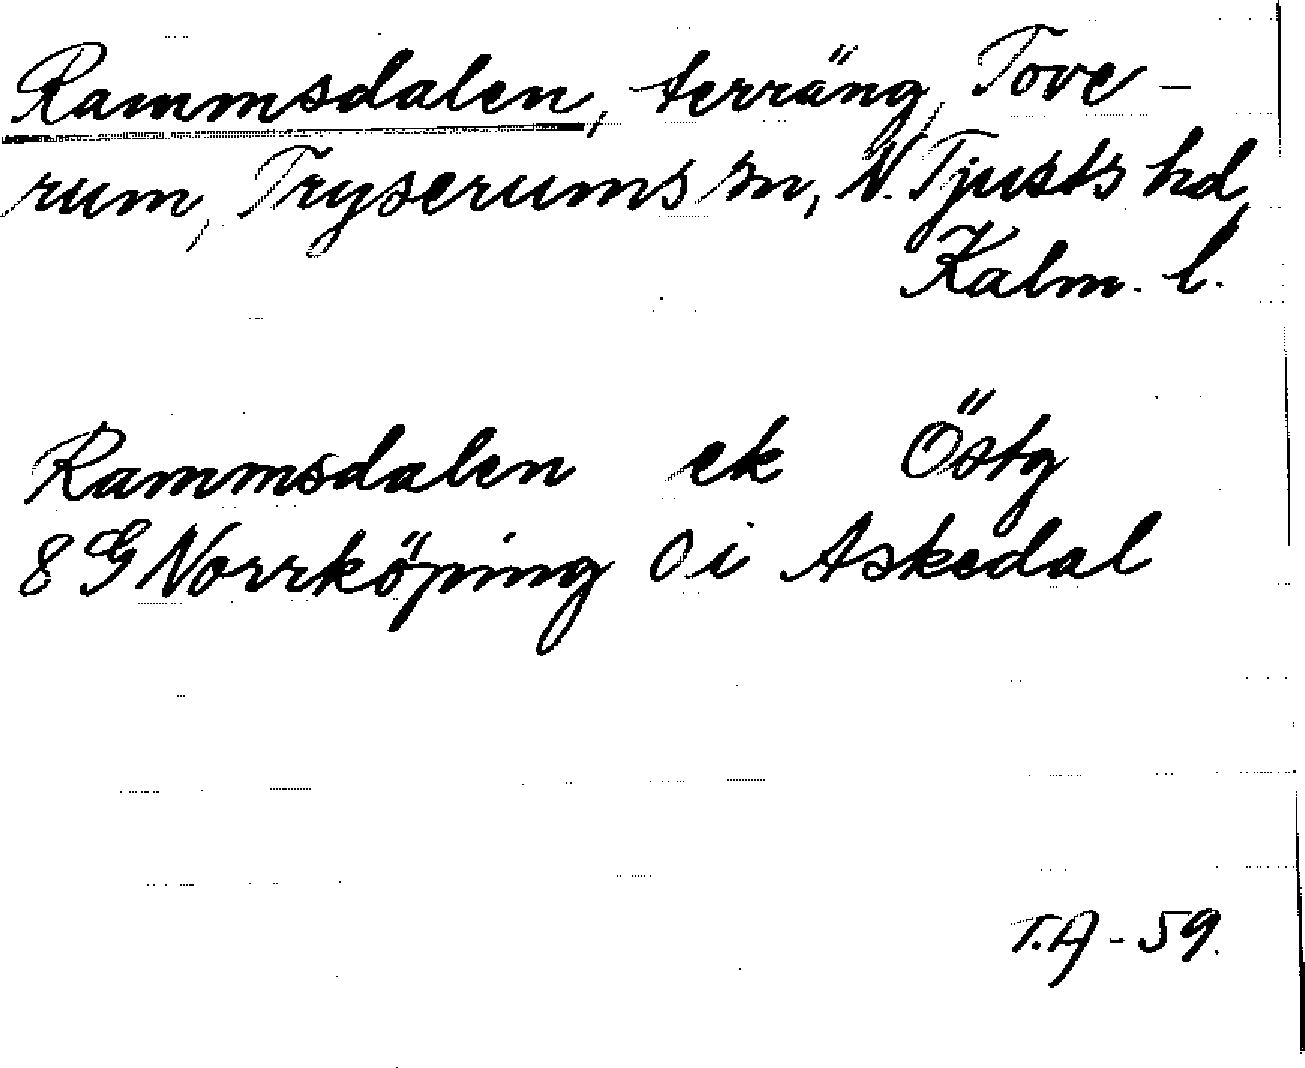 Rammsdalen, terräng, Tove-
rum, Tryserums sn, N. Tjusts hd,
Kalm. l.
Rammsdalen ek Östg
8 G Norrköping O i Askedal
T.A - 59.